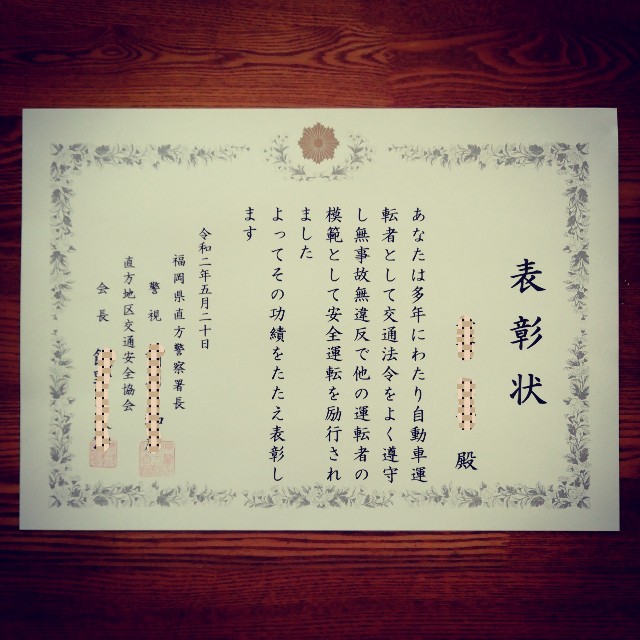 表彰状
殿
あなたは多年にわたり自動車運
転者として交通法令をよく遵守
し無事故無違反で他の運転者の
模範として安全運転を励行され
ました
よってその功績をたたえ表彰し
ます
令和二年五月二十日
福岡県直方警察署長
警視
直方地区交通安全協会
会長